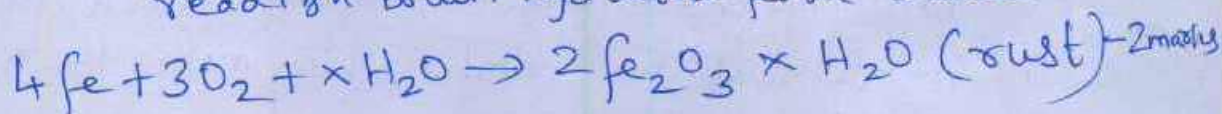 4fe+3O₂+xH₂O→2fe₂O₃ x H₂O (rust)-2marks